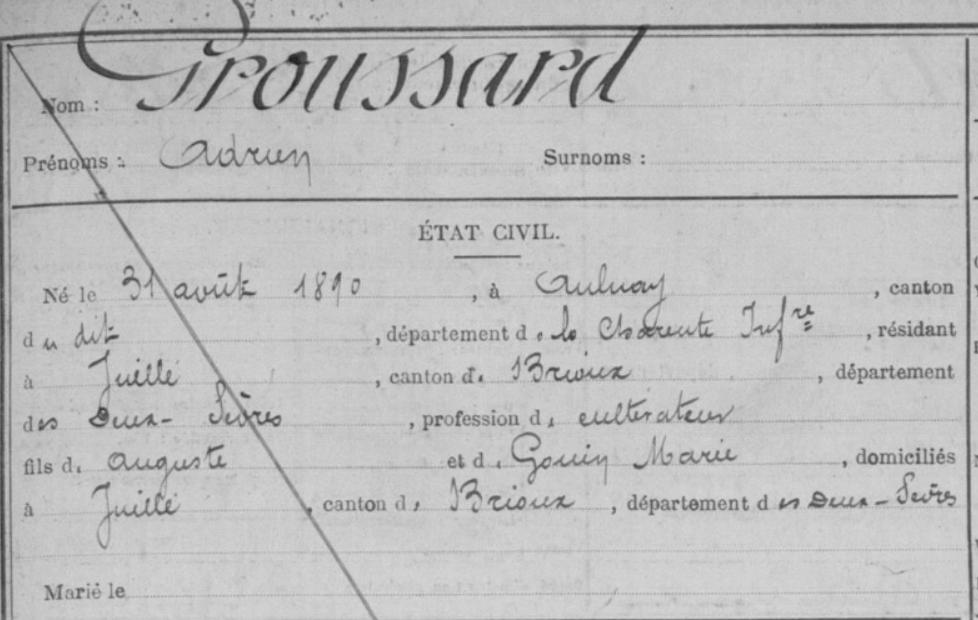 Nom : Groussard
Prénoms : Adrien Surnoms :
ÉTAT CIVIL.
Né le 31 août 1890, à Aulnay, canton
du dit, département de la Charente Infre, résidant
à Juillé, canton de Brioux, département
des Deux-Sèvres, profession de cultivateur
fils d' auguste et de Gouin Marie, domiciliés
à Juillé, canton de Brioux, département des Deux-Sèvres
Marié le